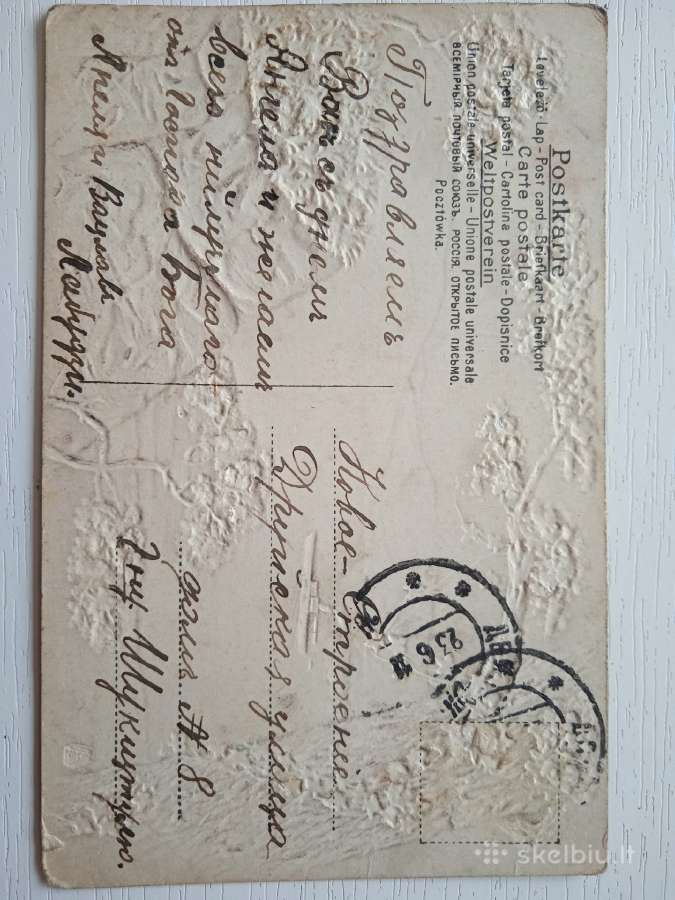 Postkarte
Carte postale
Levelező-Lap – Post card – Briefkaart – Brefkort
Tarjeta postal – Cartolina postale – Dopisnice
Weltpostverein
Union postale universelle – Unione postale universale
ВСЕМІРНЫЙ ПОЧТОВЫЙ СОЮЗЪ. РОССІЯ. ОТКРЫТОЕ ПИСЬМО.
Pocztówka.
Поздравляемъ
Васъ съ днемъ
Ангела и желаемъ
всего
отъ Господа Бога
Новое-Строеніе
Друйская улица
домъ № 8
23 6
skelbiu.lt